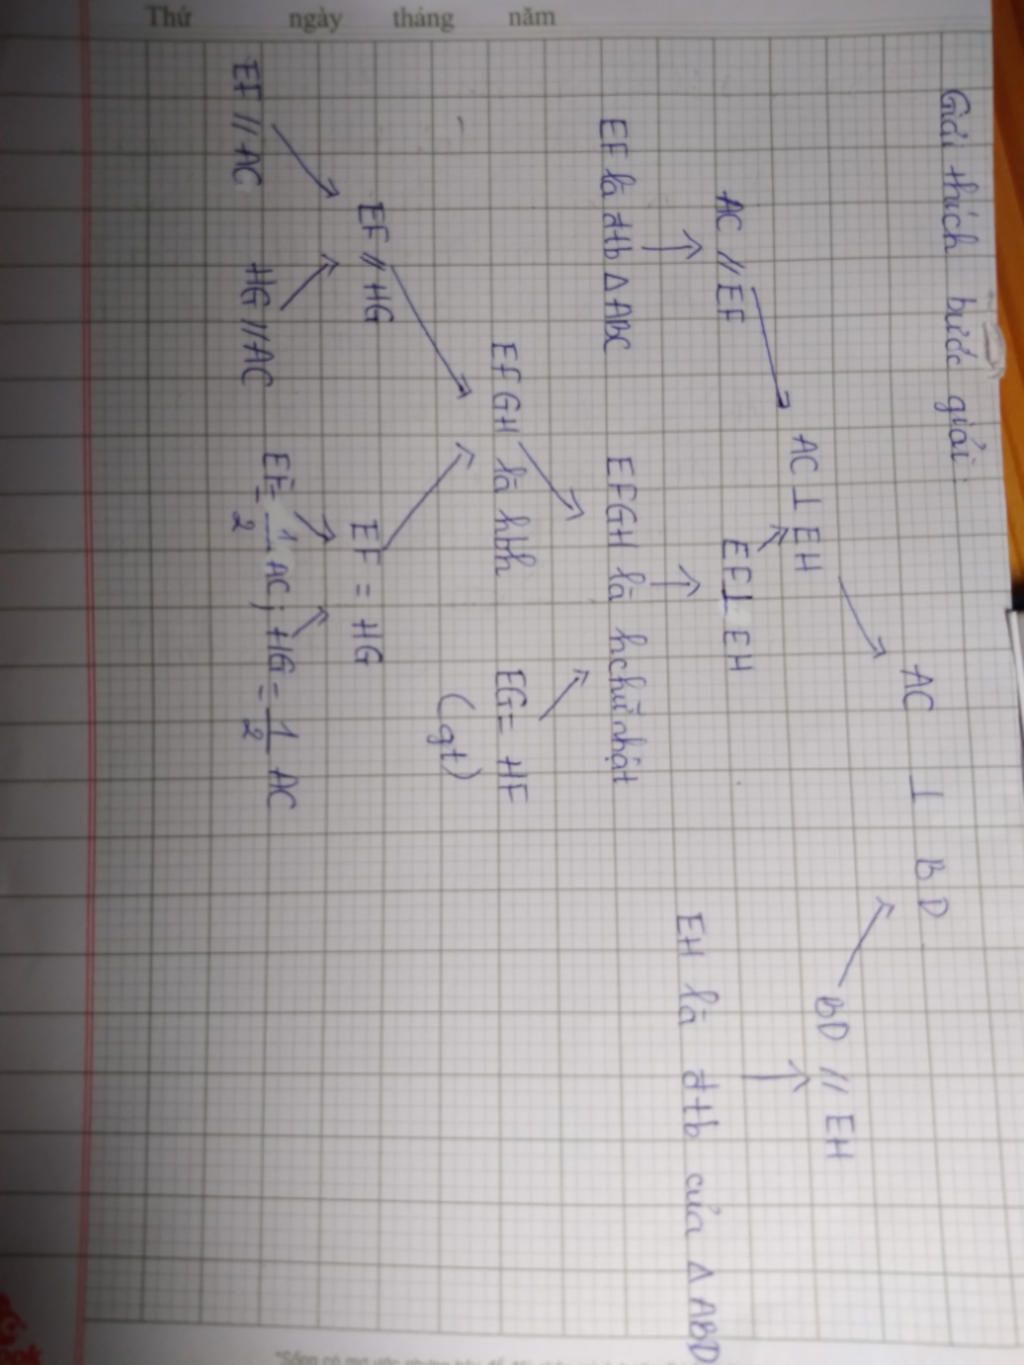 Thứ ngày tháng năm
Giải thích bước giải
AC ⊥ BD
AC ⊥ EH BD // EH
AC // EF EF ⊥ EH
EH là đtb của Δ ABD
EF là đtb Δ ABC EFGH là hchữ nhật
EFGH là hbh EG = HF
(gt)
EF // HG EF = HG
EF // AC HG // AC EF = 1/2 AC ; HG = 1/2 AC